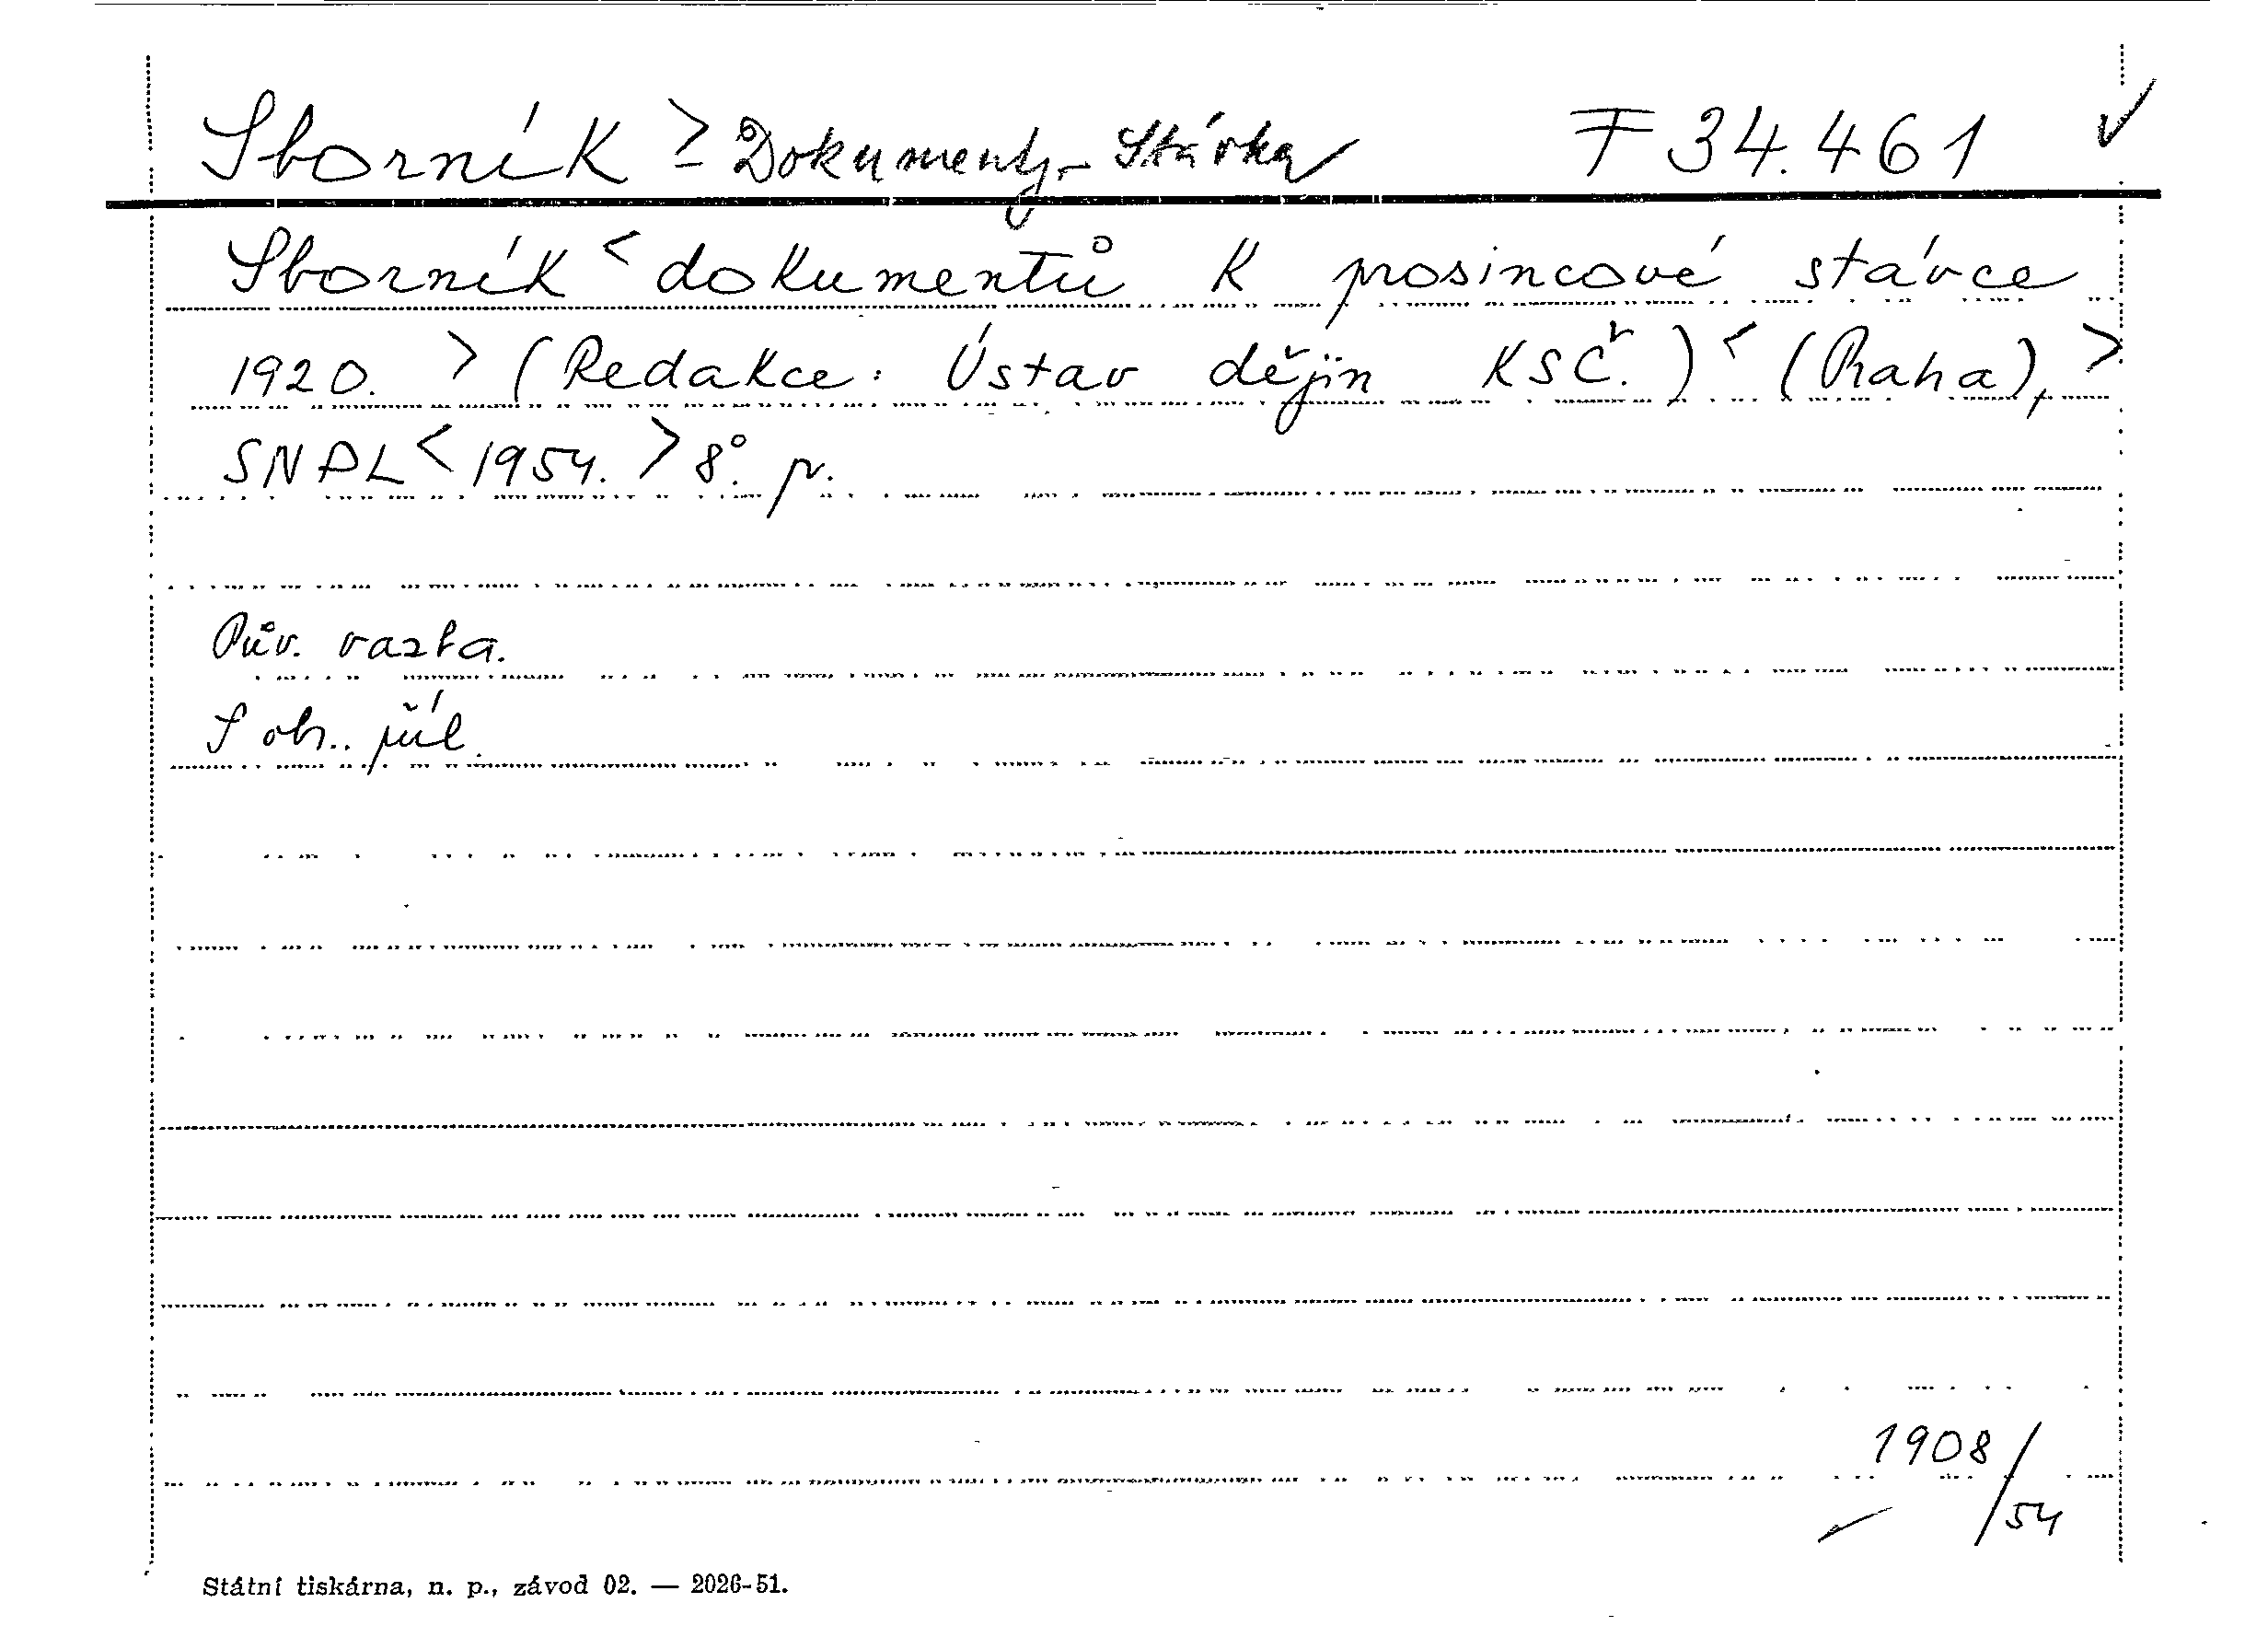 Sborník > - Dokumenty - Stávka F 34.461 ✓
Sborník < dokumentů k prosincové stávce
1920. > (Redakce: Ústav dějin KSČ.) < (Praha), >
SNPL < 1954. > 8°. p.
Pův. vazba.
S obr. příl.
1908/54
Státní tiskárna, n. p., závod 02. — 2026-51.